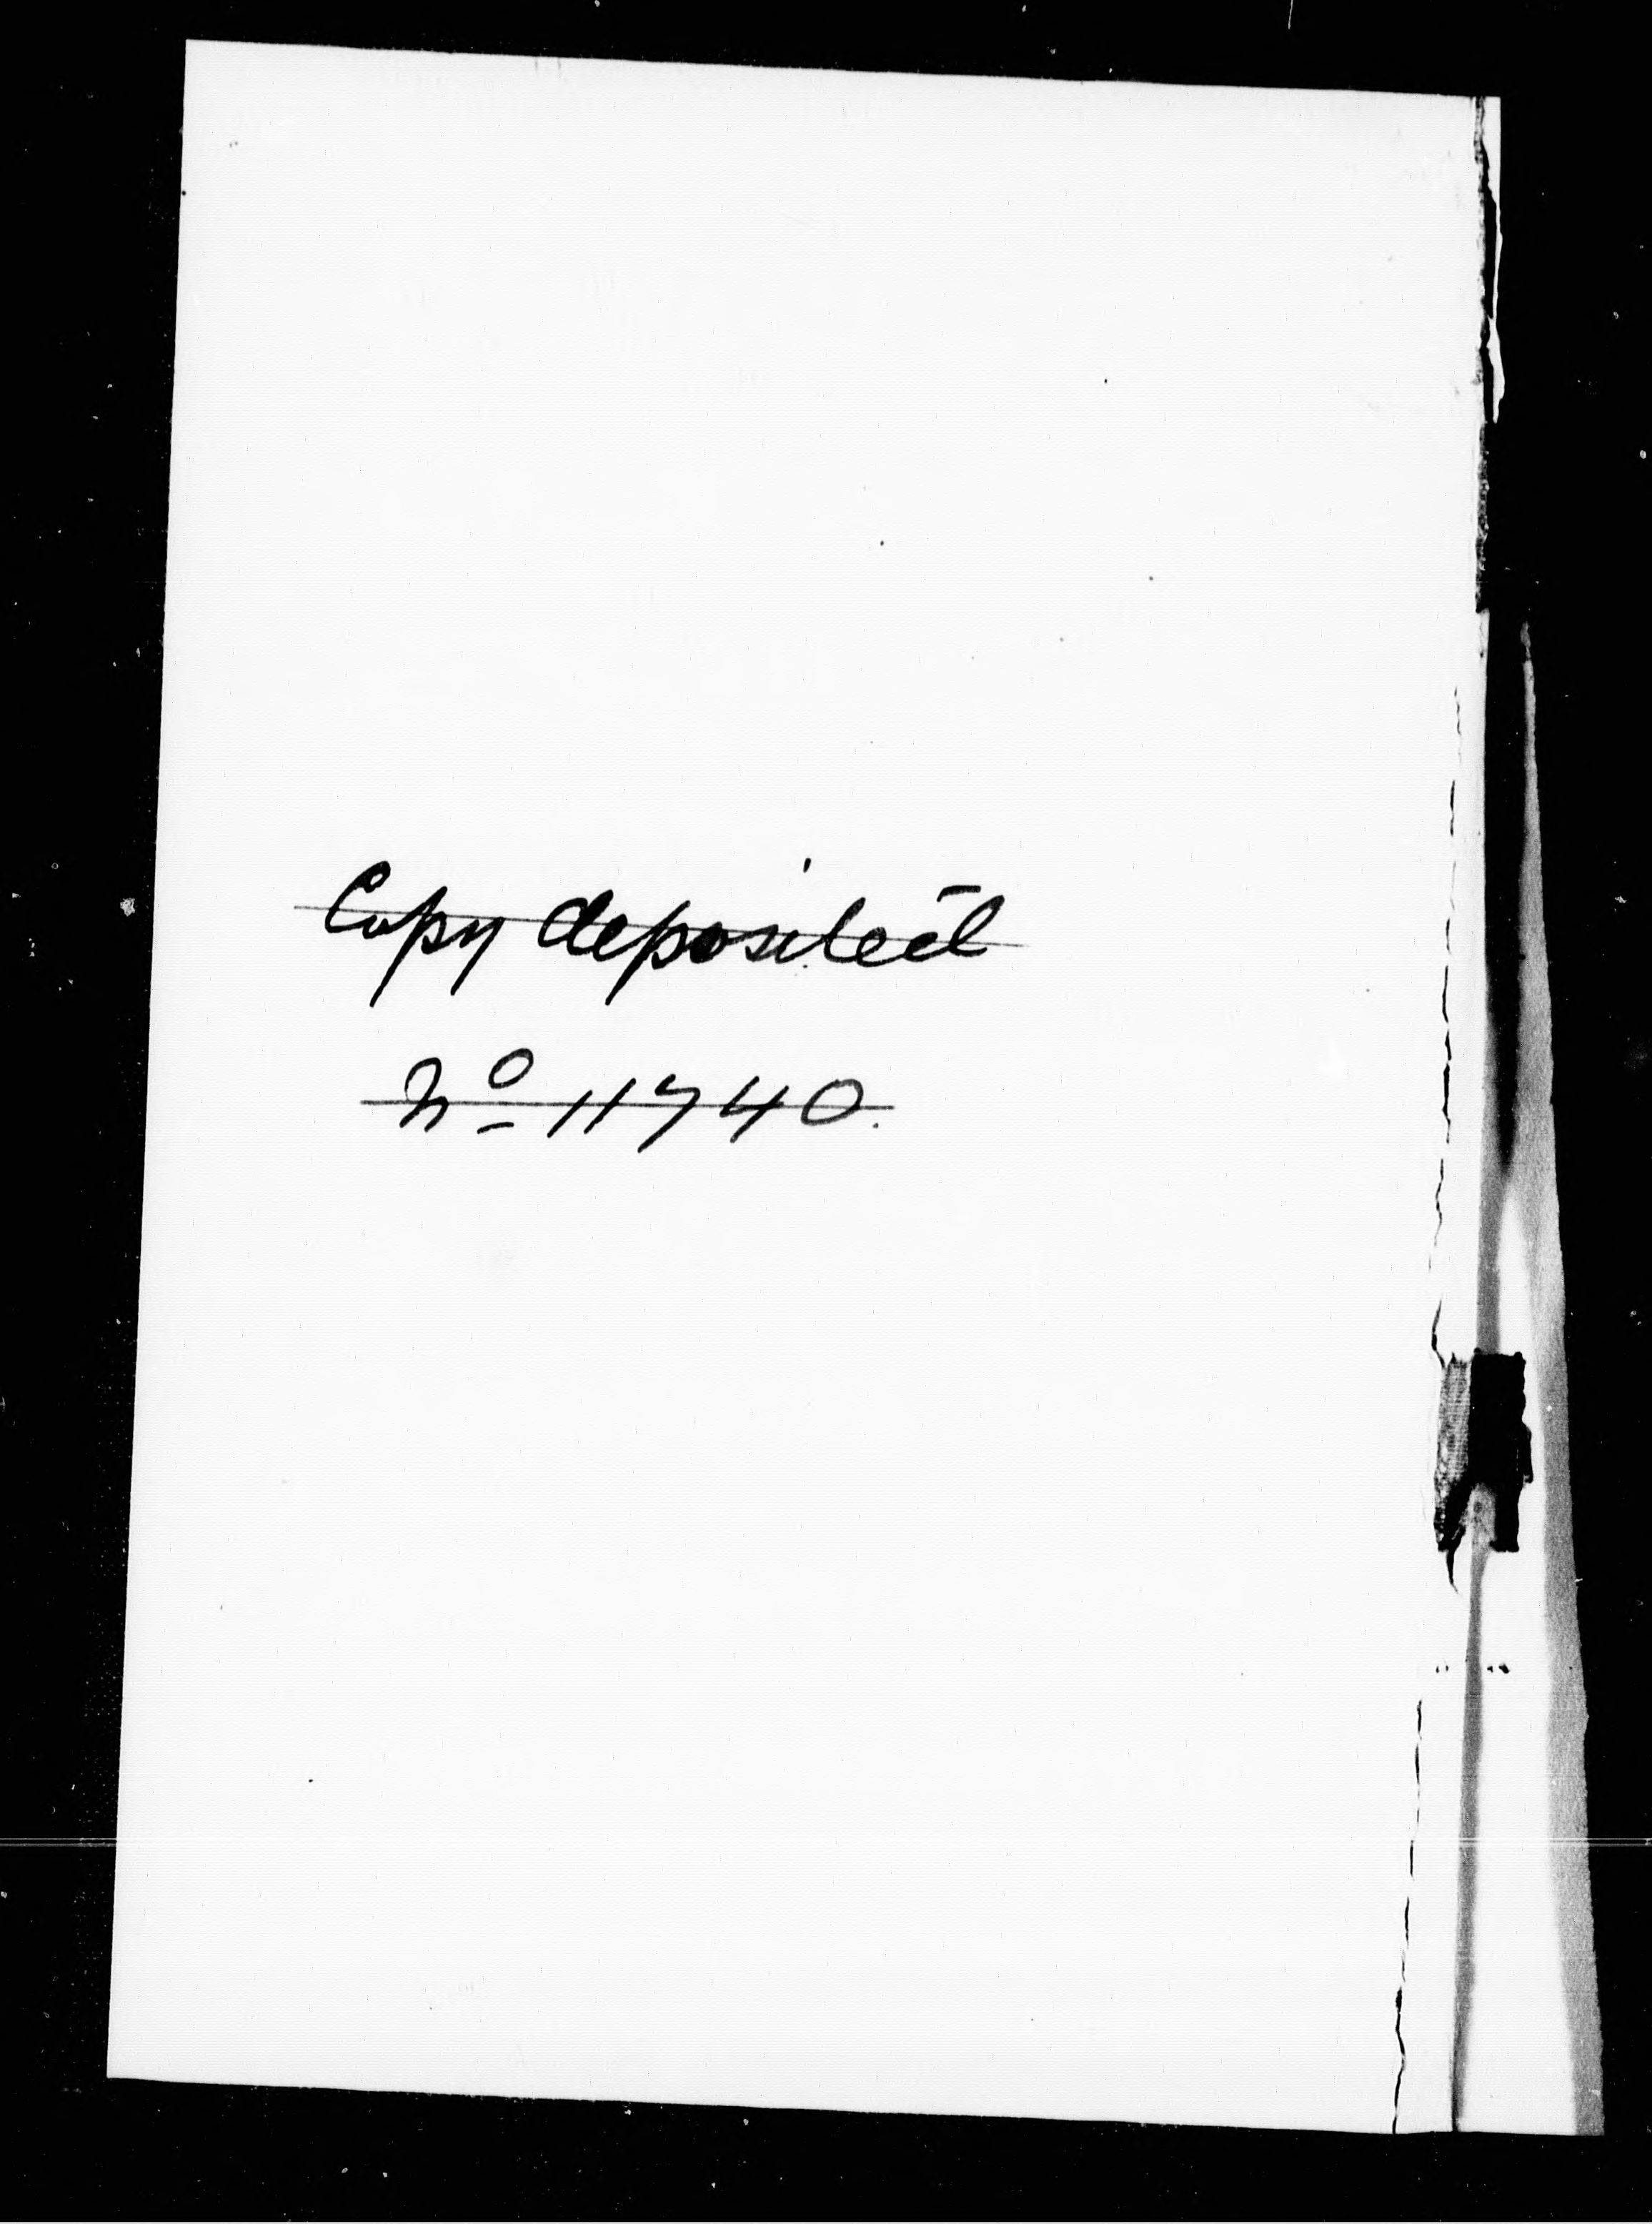 Copy deposited
No 11740.